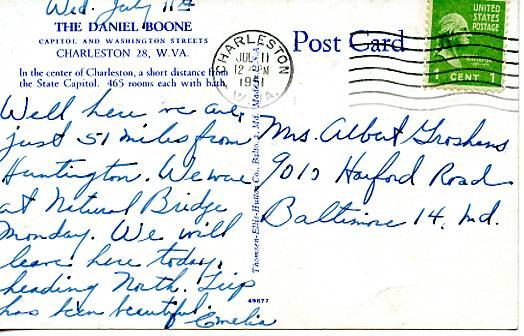 Wed. July 11th
THE DANIEL BOONE
CAPITOL AND WASHINGTON STREETS
CHARLESTON 28, W. VA.
In the center of Charleston, a short distance from
the State Capitol. 465 rooms each with bath.
Well here we are,
just 51 miles from
Huntington. We were
at Natural Bridge
Monday. We will
leave here today,
heading North. Trip
has been beautiful.
Emelia
Thomsen-Ellis-Hutton Co., Balto., Md. Made in U.S.A.
49677
Post Card
CHARLESTON
JUL 11
12 PM
1951
W. VA.
UNITED
STATES
POSTAGE
1 CENT 1
Mrs. Albert Groshans
9015 Harford Road
Baltimore 14, Md.